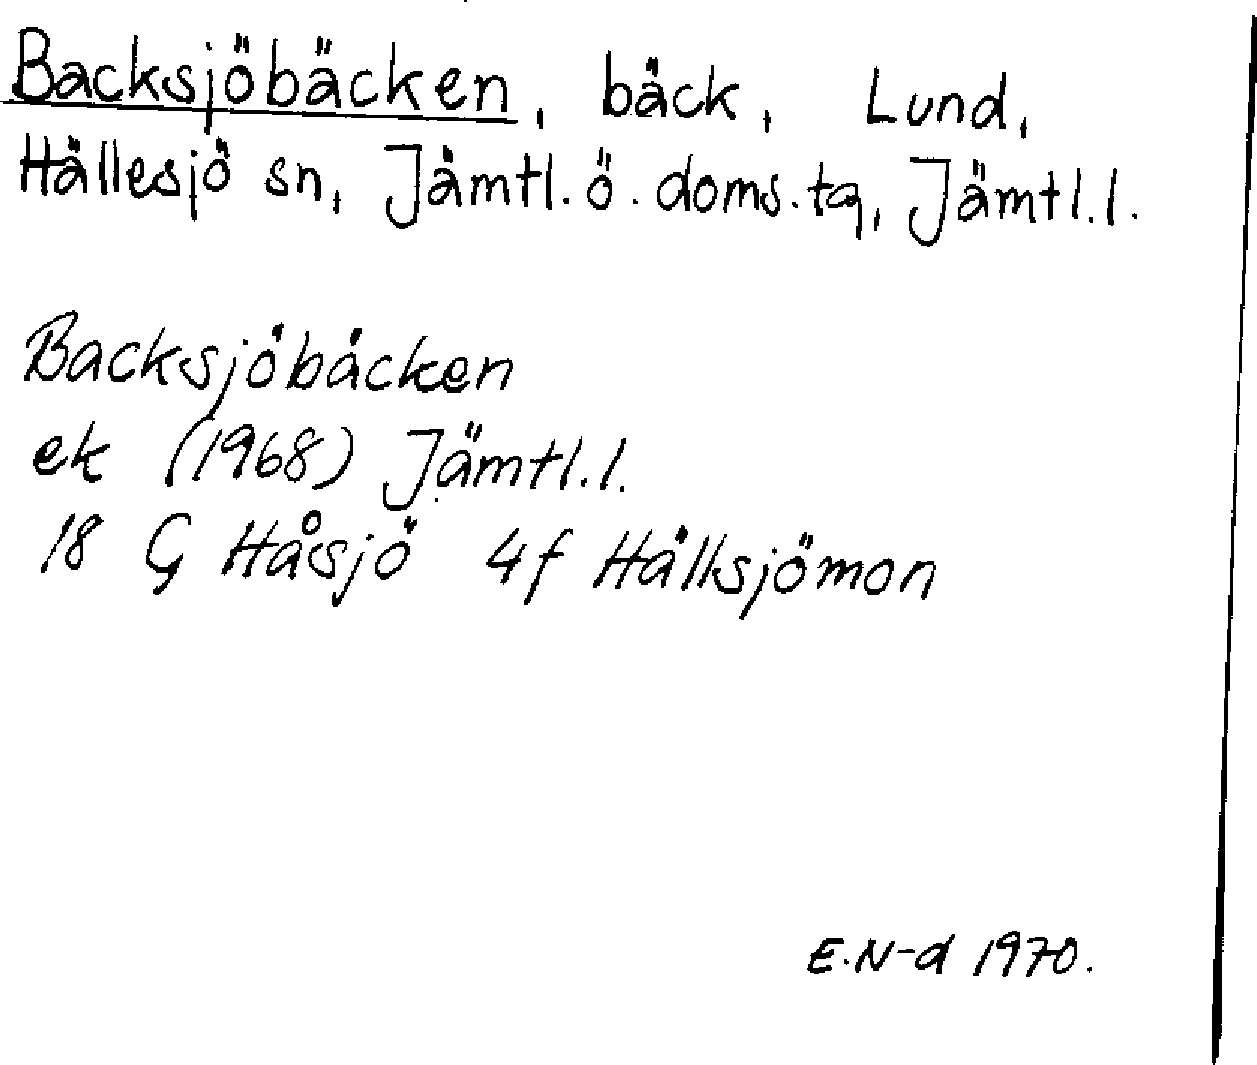 Backsjöbäcken, bäck, Lund,
Hällesjö sn, Jämtl. ö. doms. tq, Jämtl. l.
Backsjöbäcken
ek (1968) Jämtl. l.
18 G Håsjö 4f Hällsjömon
E. N-d 1970.